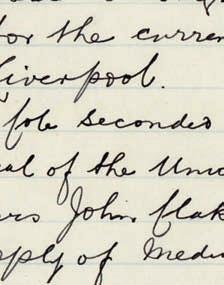 for the curren
Liverpool.
fole seconded
eal of the Unio
John flak
pply of Medi